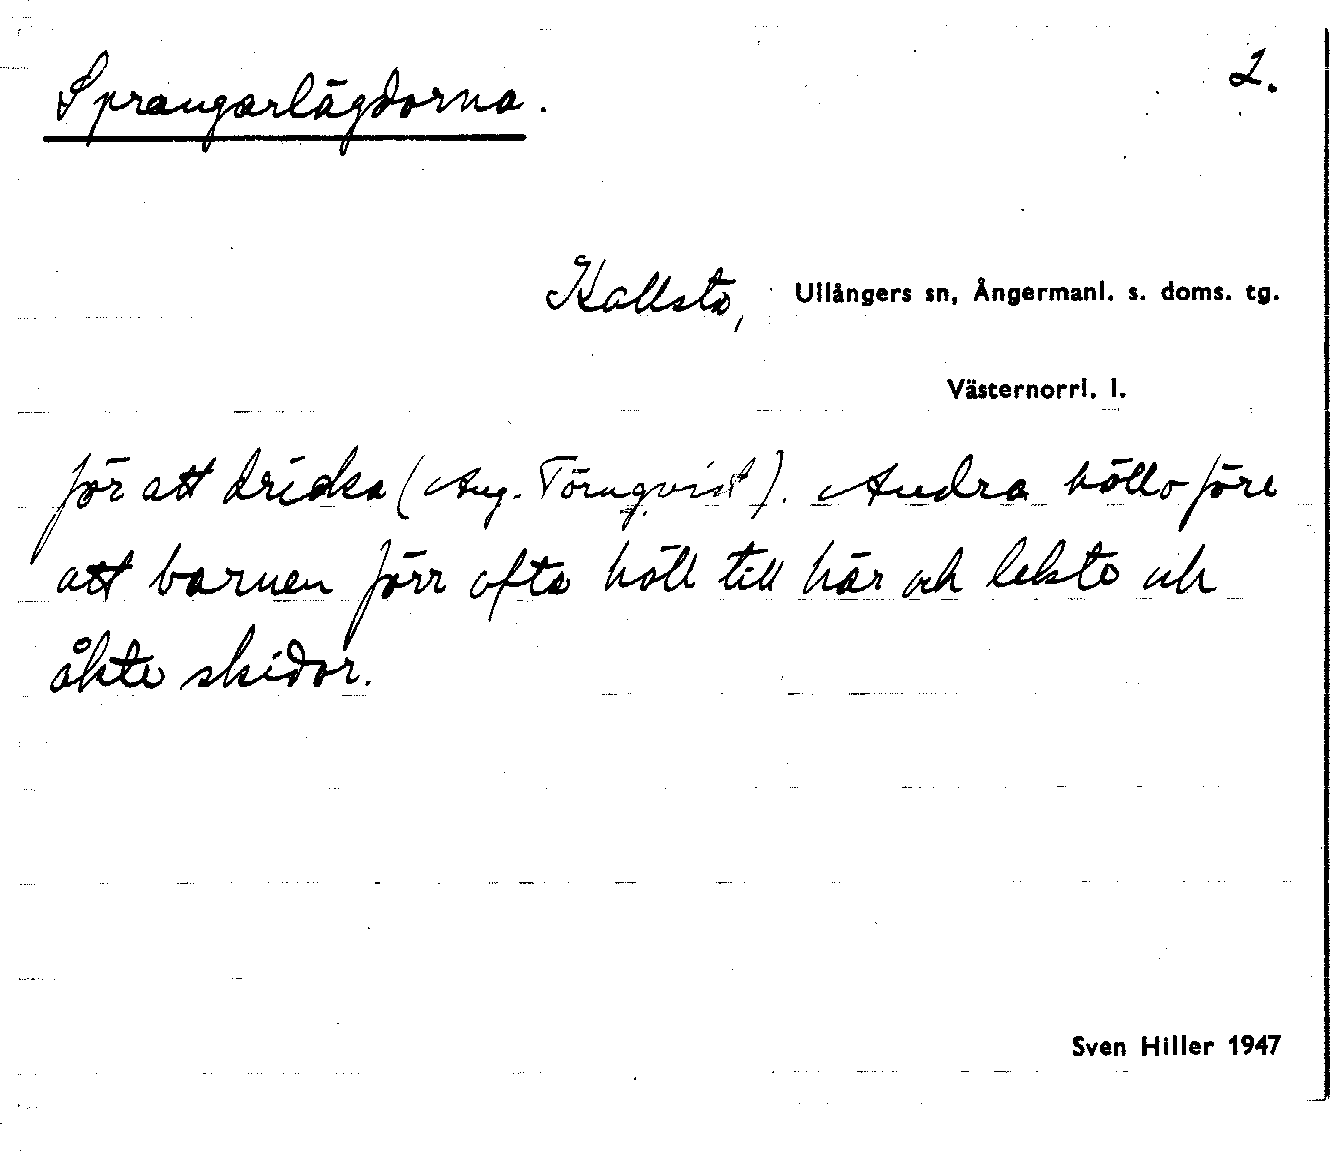 Sprangarlägdorna.
2.
Kallsta, Ullångers sn, Ångermanl. s. doms. tg.
Västernorrl. l.
för att dricka (Aug. Törnqvist). Andra höllo före
att barnen förr ofta höll till här och lekte och
åkte skidor.
Sven Hiller 1947